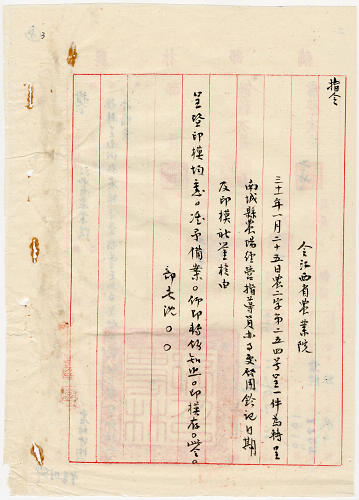 指令
令江西省農業院
三十一年一月二十五日農二字第二五四號呈一件為轉呈
南城縣農場經營指導員辦事處啟用鈐記日期
及印模祈鑒核由
呈暨印模均悉。准予備案。仰即轉飭知照。印模存。此令。
部長沈〇〇